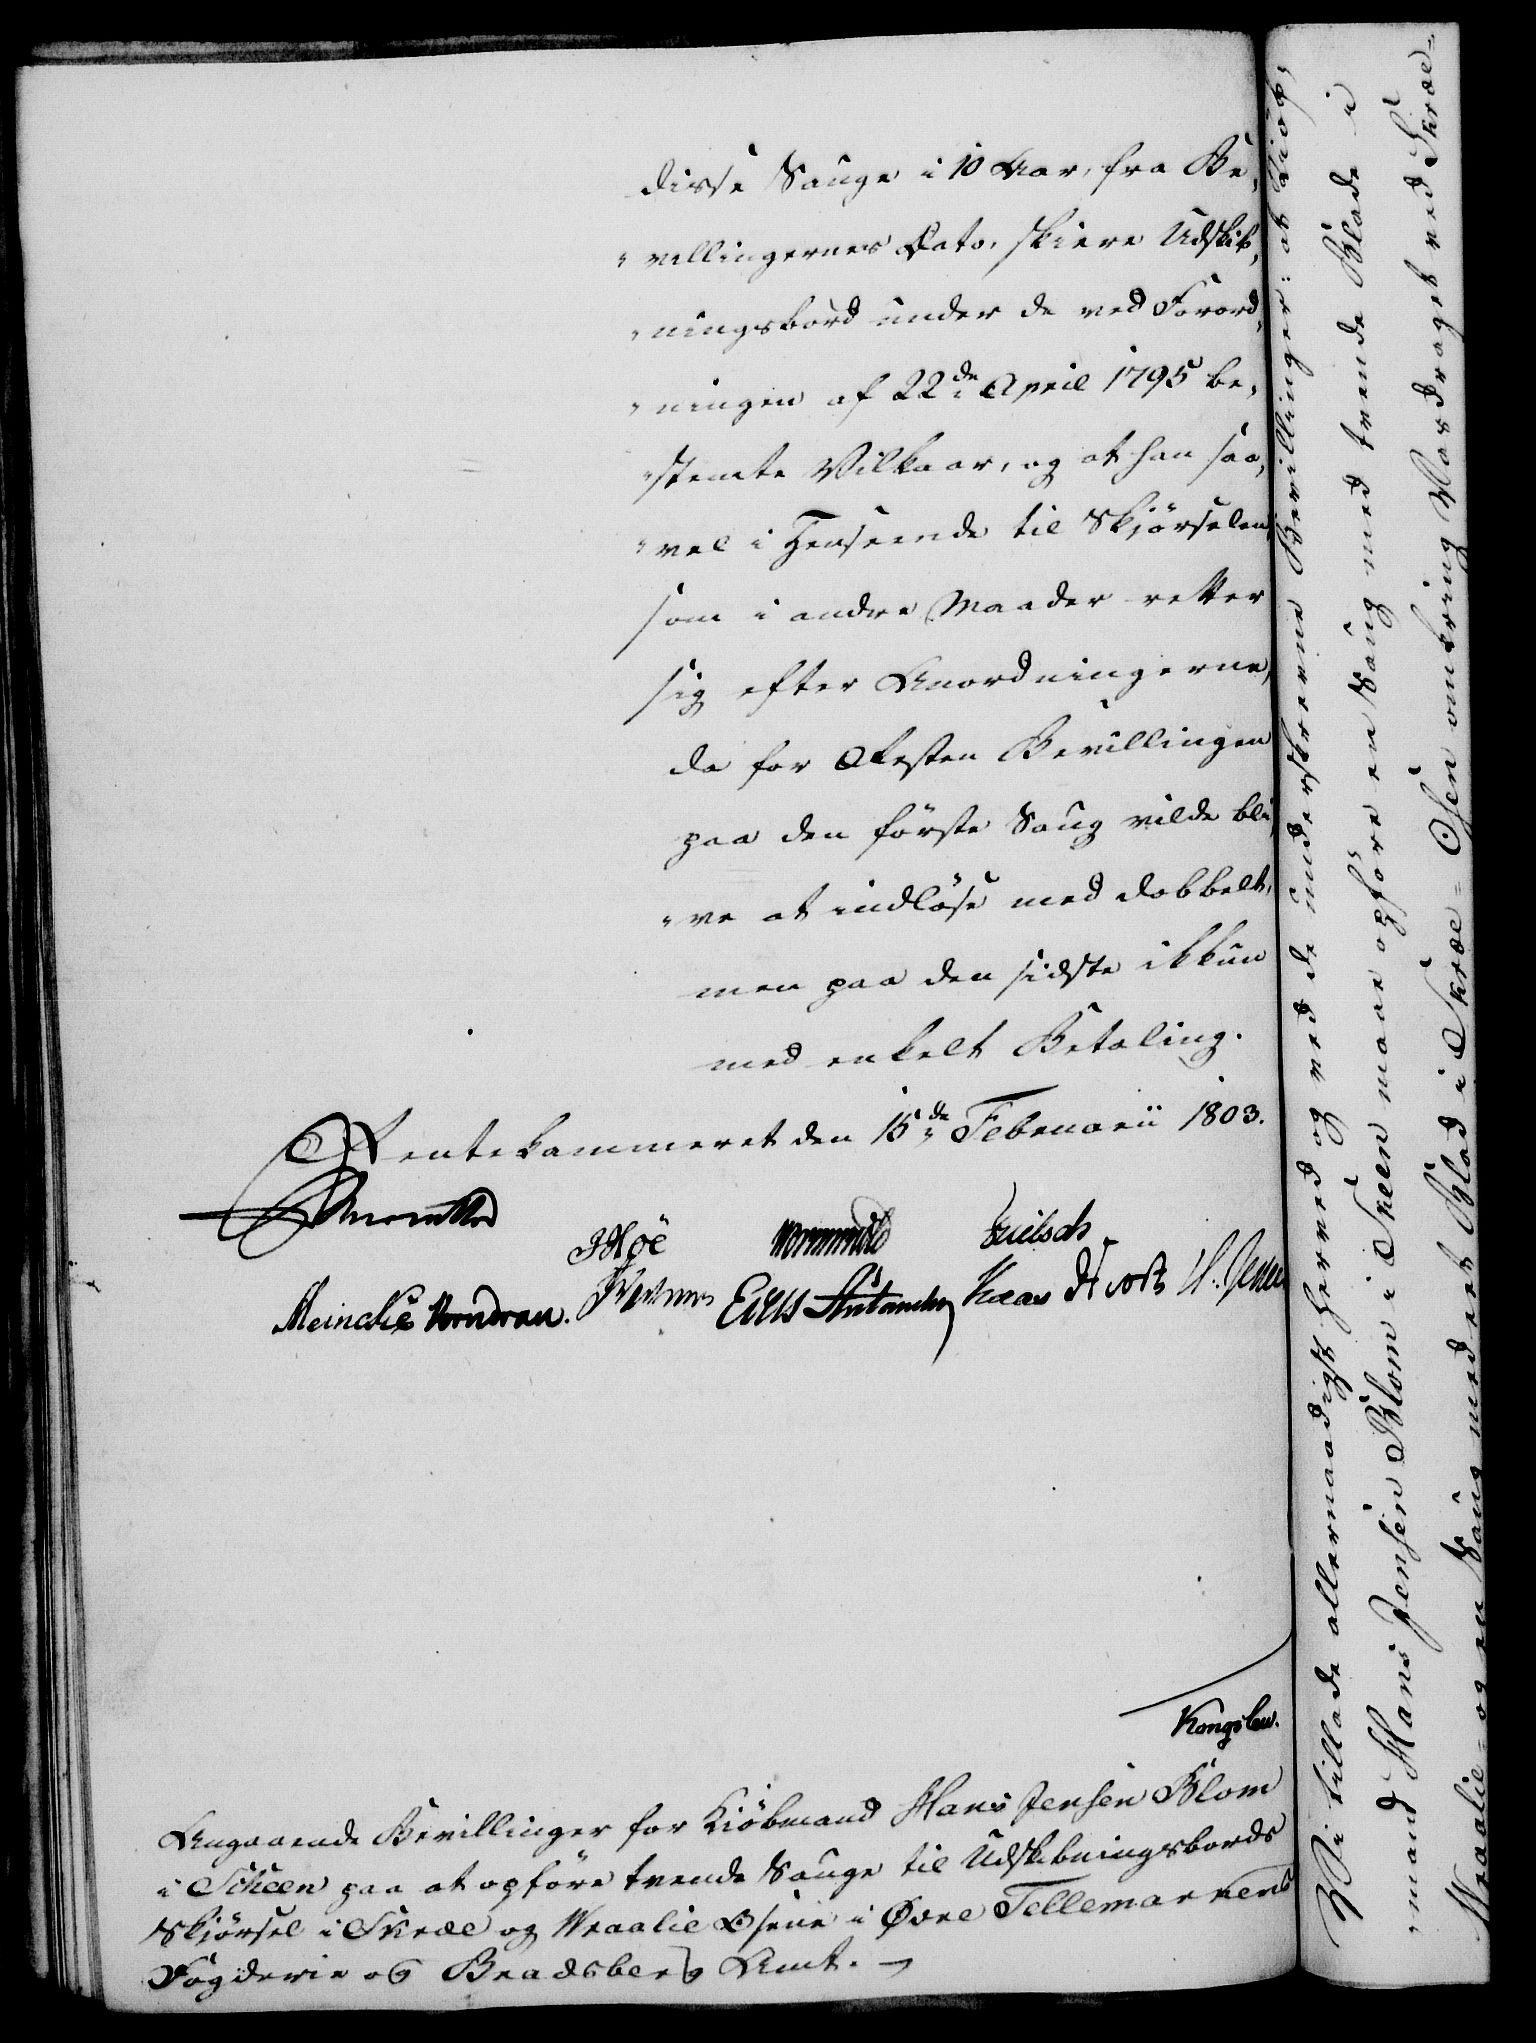 disse Sauge i 10 Aar, fra Be„
„villingernes Dato, skiere Udskib„
„ningsbord under de ved Forord„
„ningen af 22de April 1795 be„
„stemte Vilkaar, og at han saa„
„vel i Henseende til Skjørselen
som i andre Maader retter
sig efter Anordningerne,
da for Resten Bevillingen
paa den første Saug vilde bli„
„ve at indløse med dobbelt,
men paa den sidste ikkun
med enkelt Betaling.
Rentekammeret den 15de Februarii 1803.
JHøe Wormskiold
Meincke Vorndran. Kaas
Kongslew.
Angaaende Bevillinger for Kiøbmand Hans Jensen Blom
i Scheen paa at opføre tvende Sauge til Udskibningsbords
Skjørsel i Skræe og Vraalie Osene i Øvre Tellemarkens
Fogderie og Bradsberg Amt.
Vi tillade allernaadigst herved og ved de underskrevne Bevillinger: at Kiøb„
„mand Hans Jensen Blom i Skeen maae opføre en Saug med tvende Blade i
Vraalie- og en Saug med et Blad i Skræe- Osen omkring Vasdraget ved Skræe-